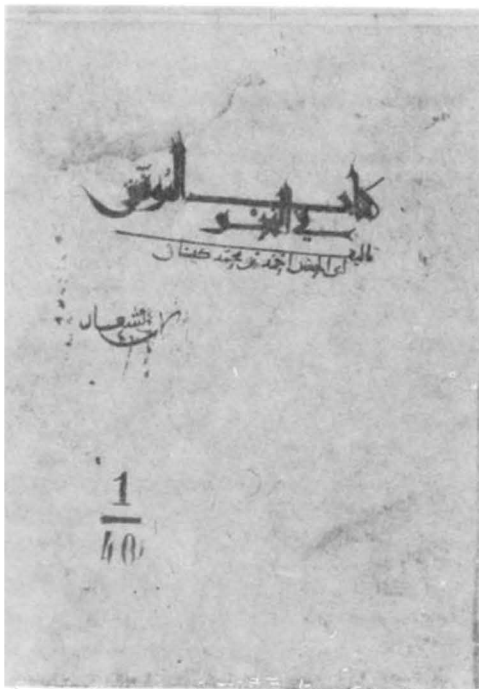 كتاب الموفقي
في النحو
تاليف ابي الحسن احمد بن محمد كيسان
1
40